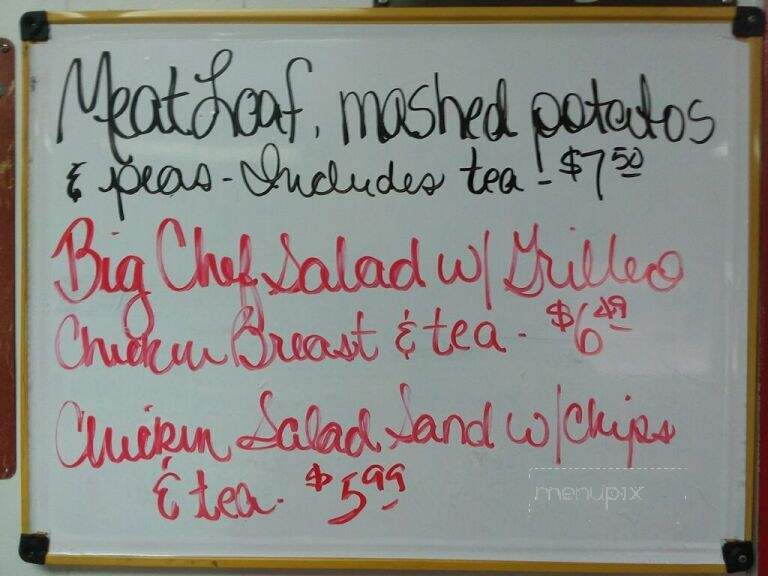 Meat Loaf, mashed potatos
& peas - Includes tea - $7.50
Big Chef Salad w/ Grilled
Chicken Breast & tea - $6.49
Chicken Salad Sand w/ chips
& tea - $5.99
menupix